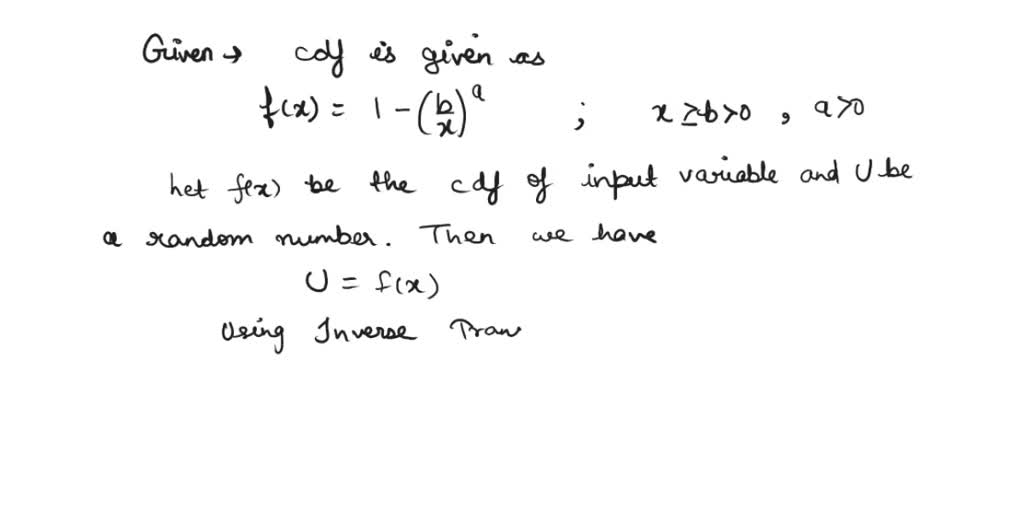 Given → cdf is given as
f(x) = 1 - (b/x)^a ; x ≥ b > 0 , a > 0
Let f(x) be the cdf of input variable and U be
a random number. Then we have
U = f(x)
Using Inverse Tran